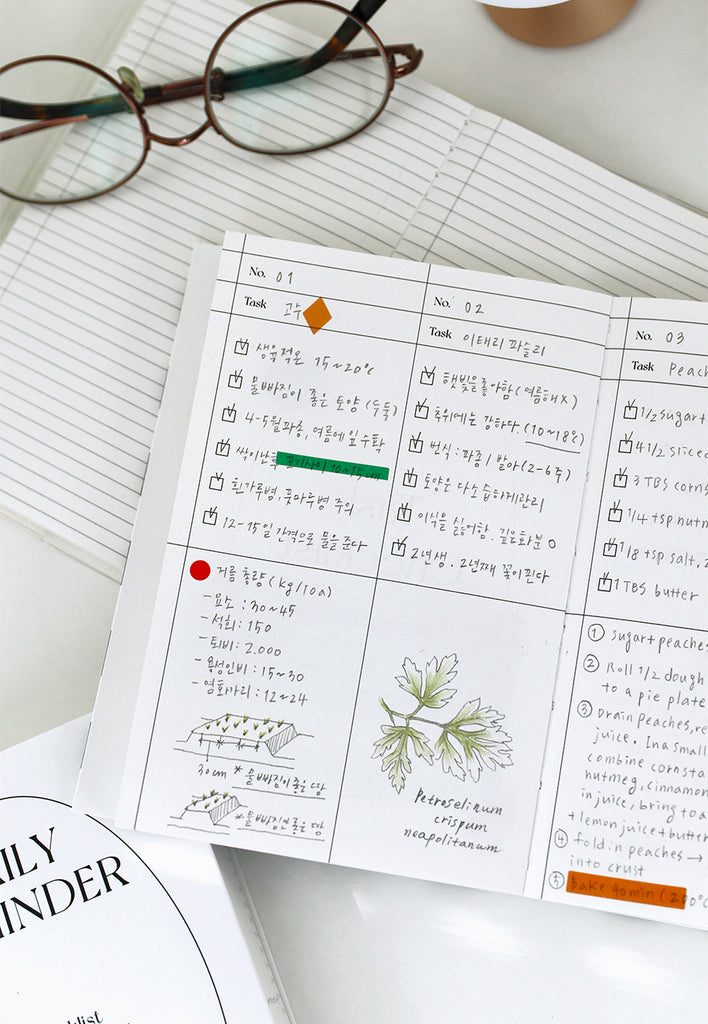 No. 01
Task 고수
생육적온 15~20℃
물빠짐이 좋은 토양 (두둑)
4-5월파종, 여름에 잎수확
싹이난후 포기사이 10~15cm
흰가루병, 풋마루병 주의
12-15일 간격으로 물을 준다
거름 총량 (kg/10a)
- 요소 : 30~45
- 석회 : 150
- 퇴비 : 2.000
- 용성인비 : 15~30
- 염화가리 : 12~24
30cm * 물빠짐이좋은땅
* 물빠짐안좋은땅
No. 02
Task 이태리 파슬리
햇빛을좋아함 (여름해X)
추위에는 강하다. (10~18℃)
번식 : 파종 / 발아 (2-6주)
토양은 다소 습하게관리
이식을 싫어함. 깊은화분 O
2년생. 2년째 꽃이핀다
Petroselinum
crispum
neapolitanum
No. 03
Task Peach
1/2 sugar+
4 1/2 sliced
3 TBS corns
1/4 tsp nutm
1/8 tsp salt, 2
1 TBS butter
① Sugar+peaches
② Roll 1/2 dough
to a pie plate
③ Drain peaches, re
juice. In a small
combine cornsta
nutmeg, cinnamon
in juice, bring to a
+ lemon juice + butter
④ fold in peaches →
into crust
⑤ Bake 40min (200℃
AILY
INDER
cklist